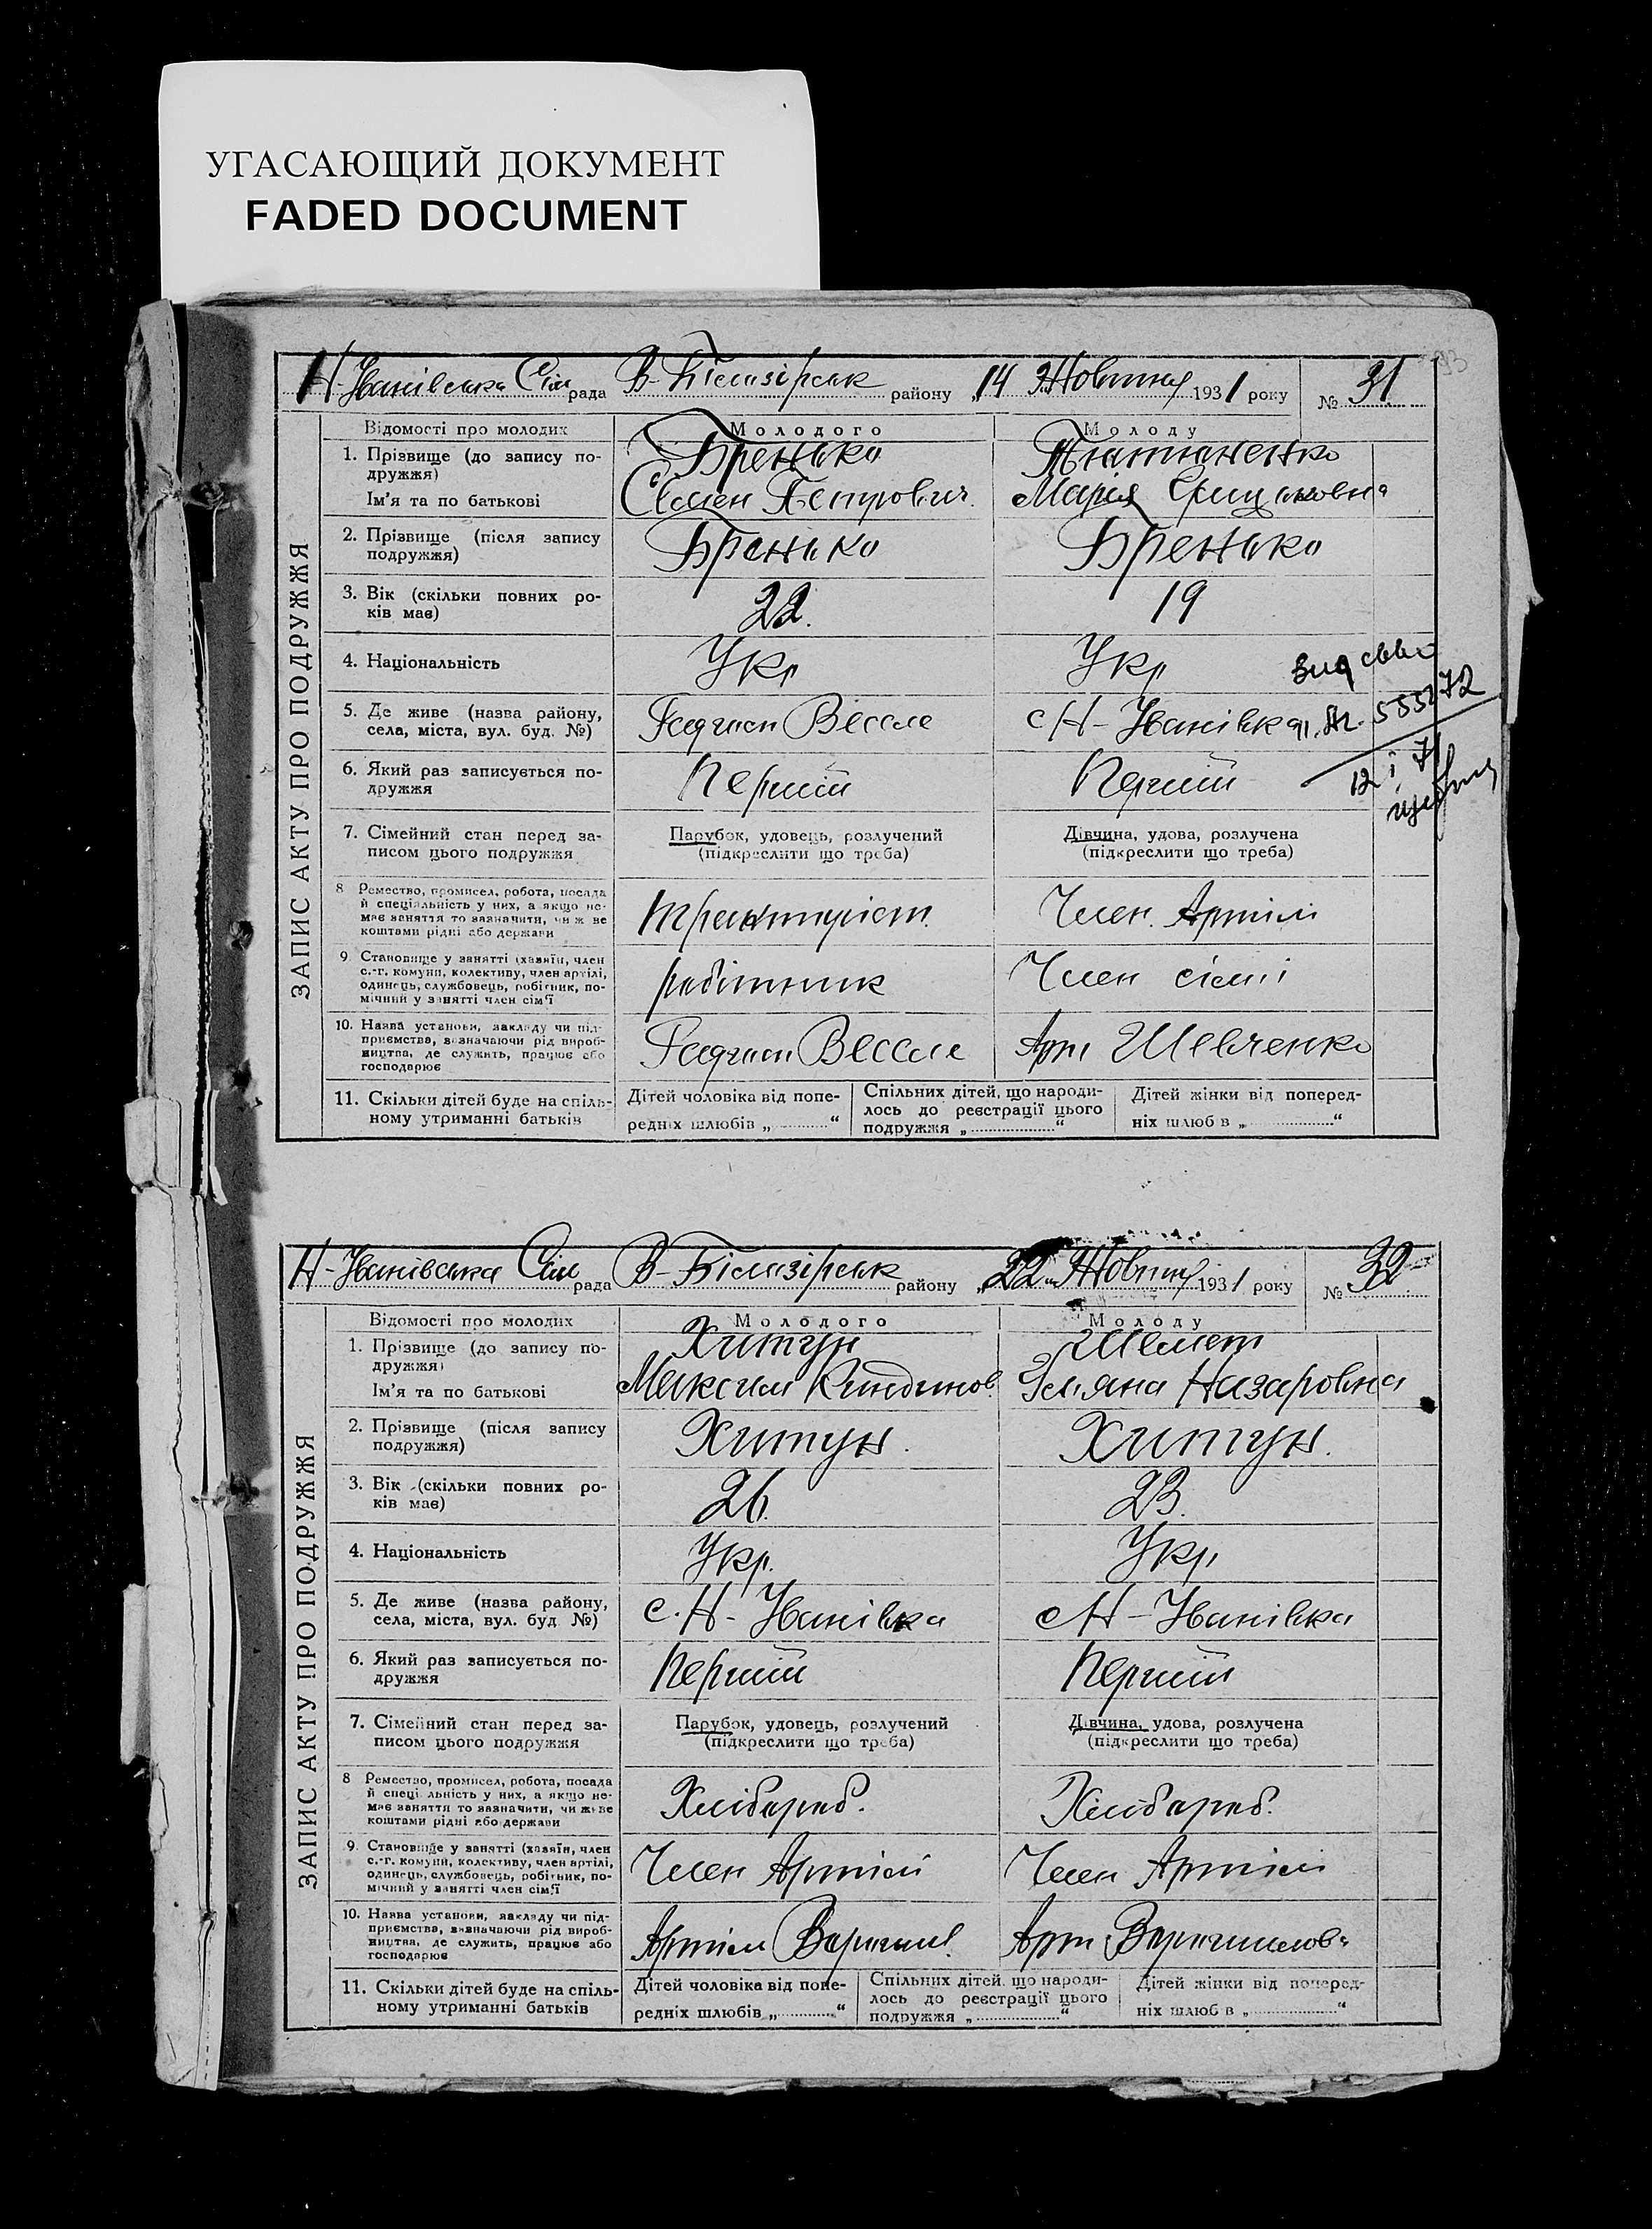 УГАСАЮЩИЙ ДОКУМЕНТ
FADED DOCUMENT
Н-Іванівська Сіл рада В-Білозірськ району „14 Жовтня 1931 року № 31
ЗАПИС АКТУ ПРО ПОДРУЖЖЯ
Відомості про молодих Молодого Молоду
1. Прізвище (до запису по-
дружжя)
Бренько
Ім'я та по батькові Семен Петрович Марія
2. Прізвище (після запису
подружжя)
Бренько Бренько
3. Вік (скільки повних ро-
ків має)
22. 19
4. Національність Укр Укр
5. Де живе (назва району,
села, міста, вул. буд. №)
Радгосп Веселе с Н-Іванівка
6. Який раз записується по-
дружжя
Перший Перший
7. Сімейний стан перед за-
писом цього подружжя
Парубок, удовець, розлучений
(підкреслити що треба)
Дівчина, удова, розлучена
(підкреслити що треба)
8 Ремество, промисел, робота, посада
й спеціальність у них, а якщо не-
має заняття то зазначити, чи живе
коштами рідні або держави
Член Артілі
9 Становище у занятті (хазяїн, член
с.-г. комуни, колективу, член артілі,
одинець, службовець, робітник, по-
мічний у занятті член сім'ї
робітник Член сімї
10. Назва установи, закладу чи під-
приємства, зазначаючи рід вироб-
ництва, де служить, працює або
господарює
Радгосп Веселе Арт Шевченко
11. Скільки дітей буде на спіль-
ному утриманні батьків
Дітей чоловіка від попе-
редніх шлюбів „ “
Спільних дітей, що народи-
лось до реєстрації цього
подружжя „ “
Дітей жінки від поперед-
ніх шлюб в „ “
Н-Іванівська Сіл рада В-Білозірськ району „22“ Жовтня 1931 року № 32
ЗАПИС АКТУ ПРО ПОДРУЖЖЯ
Відомості про молодих Молодого Молоду
1. Прізвище (до запису по-
дружжя)
Хитун Шемет
Ім'я та по батькові Максим Назаровна
2. Прізвище (після запису
подружжя)
Хитун. Хитун.
3. Вік (скільки повних ро-
ків має)
26. 23.
4. Національність Укр. Укр
5. Де живе (назва району,
села, міста, вул. буд №)
с. Н-Іванівка с Н-Іванівка
6. Який раз записується по-
дружжя
Перший Перший
7. Сімейний стан перед за-
писом цього подружжя
Парубок, удовець, розлучений
(підкреслити що треба)
Дівчина, удова, розлучена
(підкреслити що треба)
8 Ремество, промисел, робота, посада
й спеціальність у них, а якщо не-
має заняття то зазначити, чи живе
коштами рідні або держави
Хлібороб. Хлібороб.
9. Становище у занятті (хазяїн, член
с.-г. комуни, колективу, член артілі,
одинець, службовець, робітник, по-
мічний у занятті член сім'ї
Член Артілі Член Артілі
10. Назва установи, закладу чи під-
приємства, зазначаючи рід вироб-
ництва, де служить, працює або
господарює
Артіль Ворошил. Арт Ворошилова
11. Скільки дітей буде на спіль-
ному утриманні батьків
Дітей чоловіка від попе-
редніх шлюбів „ “
Спільних дітей, що народи-
лось до реєстрації цього
подружжя „ “
Дітей жінки від поперед-
ніх шлюб в „ “